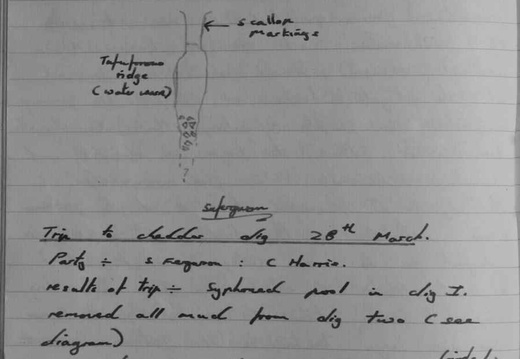 scallop
markings
ridge
(water worn)
?
S Ferguson
Trip to cheddar dig 28th March.
Party ÷ S Ferguson : C Harris.
results of trip ÷ Syphoned pool in dig I.
removed all mud from dig two (see
diagram)